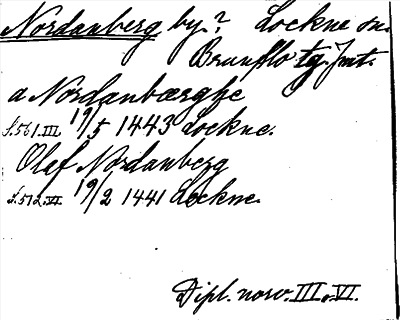 Nordanberg by.? Lockne sn.
Brunflo tg. Jmt.
a Nordanbærghe
s.561.III. 19/5 1443 Lockne.
Olaf Nordanberg
s.512.VI. 19/2 1441 Lockne.
Dipl. norv. III, VI.